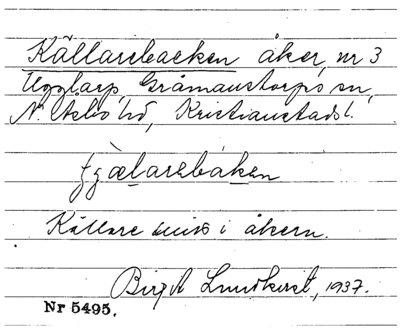 Källarebacken åker, nr 3
Ugglarp, Gråmanstorps sn,
N. Åsbo hd, Kristianstads l.
Källare finns i åkern.
Birgit Lundkvist, 1937.
Nr 5495.